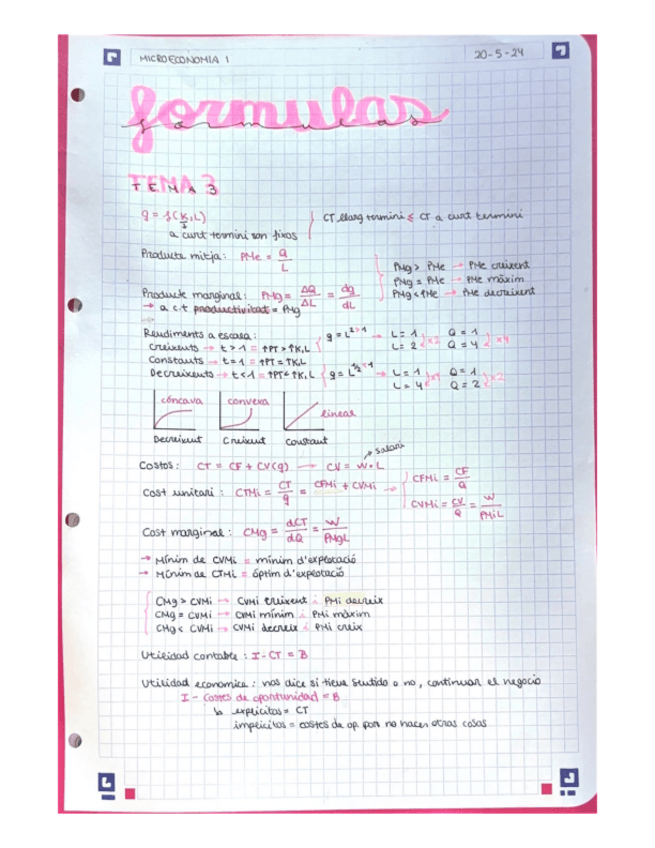 MICROECONOMIA 1
20-5-24
formulas
formulas
TEMA 3
q = f(K,L)
a curt termini son fixos
CT llarg termini ≤ CT a curt termini
Producte mitjà: PMe = Q/L
PMg > PMe → PMe creixent
PMg = PMe → PMe màxim
PMg < PMe → PMe decreixent
Producte marginal: PMg = ΔQ/ΔL = dq/dL
→ a c.t productivitat = PMg
Rendiments a escala:
Creixents → t>1 = ↑PT > ↑K,L
Constants → t=1 = ↑PT = ↑K,L
Decreixents → t<1 = ↑PT < ↑K,L
q = L^2 >1 → L=1 Q=1
L=2 x2 Q=4 x4
q = L^1/2 <1 → L=1 Q=1
L=4 x4 Q=2 x2
còncava
convexa
linear
Decreixent
Creixent
Constant
Costos: CT = CF + CV(q) → CV = W·L
→ salari
Cost unitari: CTMi = CT/q = CFMi + CVMi →
CFMi = CF/Q
CVMi = CV/Q = W/PMiL
Cost marginal: CMg = dCT/dQ = W/PMgL
→ Mínim de CVMi = mínim d'explotació
→ Mínim de CTMi = òptim d'explotació
CMg > CVMi → CVMi creixent i PMi decreix
CMg = CVMi → CVMi mínim i PMi màxim
CMg < CVMi → CVMi decreix i PMi creix
Utilidad contable: I - CT = B
Utilidad economica: nos dice si tiene sentido o no, continuar el negocio
I - Costes de oportunidad = B
↳ explicitos = CT
implicitos = costes de op. por no hacer otras cosas